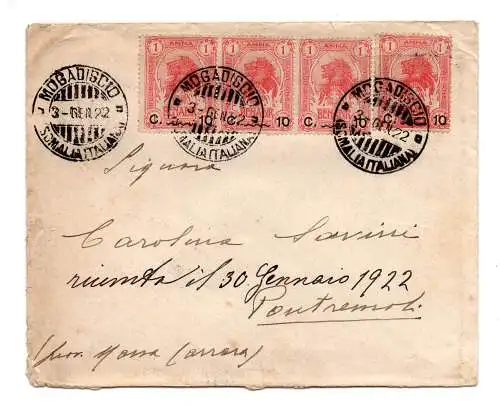 1 ANNA 1 1 ANNA 1 1 ANNA 1 1 ANNA 1
C. 10 C. 10 C. 10 C. 10
MOGADISCIO
3-GEN.22
(SOMALIA ITALIANA)
MOGADISCIO
3-GEN.22
(SOMALIA ITALIANA)
MOGADISCIO
GEN.22
(SOMALIA ITALIANA)
Signora
Carolina Savini
ricevuta il 30 Gennaio 1922
Pontremoli
Massa (Carrara)